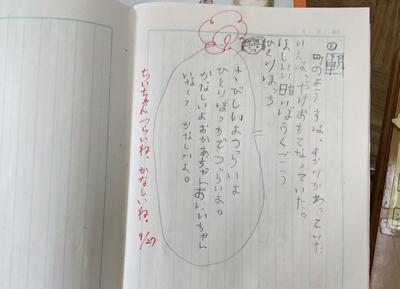 四場面
町のようすは、すがりかわっていた
いえは、やけおちてなっていた。
ほしいい 暗いぼうくうごう
ひとりぼっち
さびしいよつらいよ
ひとりぼっちでつらいよ。
かなしいよおかあちゃんおにいちゃん
いなくて、かなしいよ。
ちいちゃんつらいね、かなしいね。
9/27